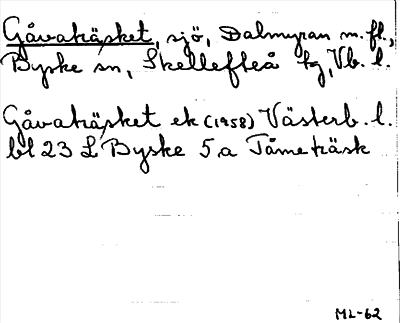 Gåvaträsket, sjö, Dalmyran m.fl.,
Byske sn, Skellefteå tg, Vb. l.
Gåvaträsket ek (1958) Västerb. l.
bl 23 L Byske 5a Tåmeträsk
ML-62